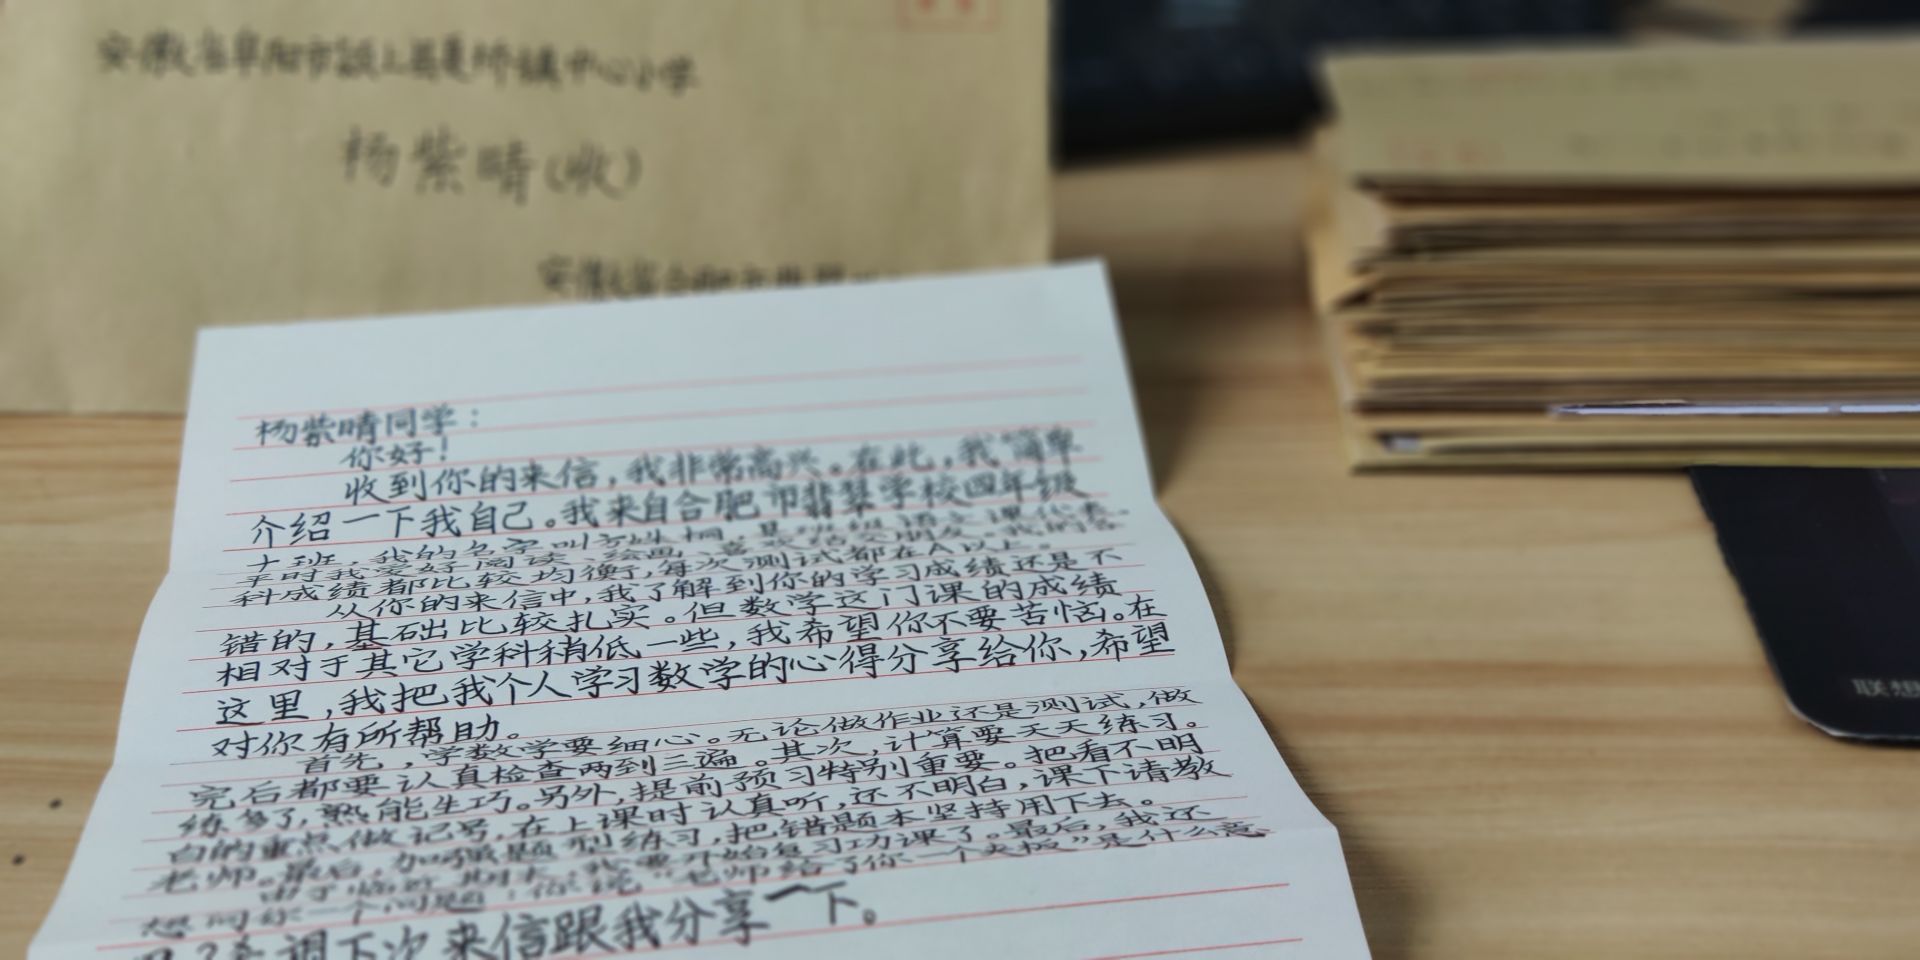 安徽省阜阳市颍上县夏桥镇中心小学
杨紫晴(收)
安徽省合肥市
杨紫晴同学：
你好！
收到你的来信，我非常高兴。在此，我简单
介绍一下我自己。我来自合肥市翡翠学校四年级
十班，我的名字叫 是班级语文课代表。
平时我爱好阅读、绘画，喜欢结交朋友。我的各
科成绩都比较均衡，每次测试都在A以上。
从你的来信中，我了解到你的学习成绩还是不
错的，基础比较扎实。但数学这门课的成绩
相对于其它学科稍低一些，我希望你不要苦恼。在
这里，我把我个人学习数学的心得分享给你，希望
对你有所帮助。
首先，学数学要细心。无论做作业还是测试，做
完后都要认真检查两到三遍。其次，计算要天天练习。
练多了，熟能生巧。另外，提前预习特别重要。把看不明
白的重点做记号，在上课时认真听，还不明白，课下请教
老师。最后，加强题型练习，把错题本坚持用下去。
由于临近期末，我要开始复习功课了。最后，我还
想问你一个问题：你说“老师给了你一个夹板”是什么意
思？希望下次来信跟我分享一下。
联想